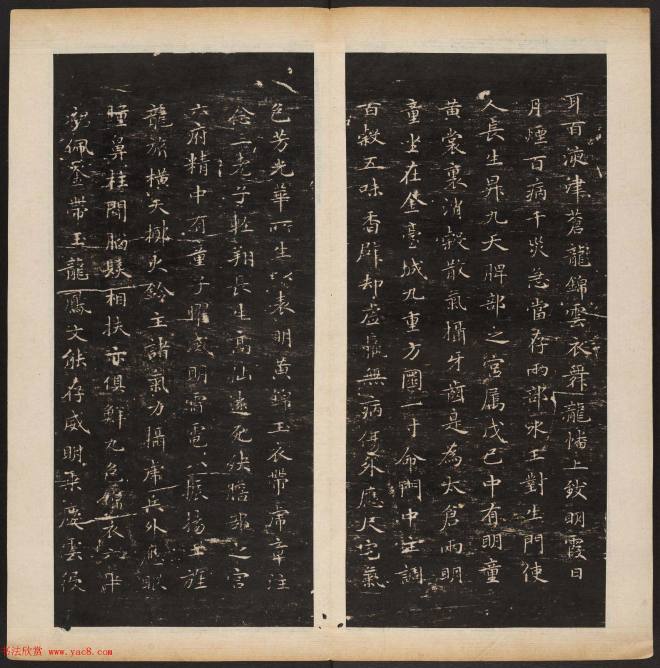 耳百液津蒼龍錦雲衣舞龍幡上致明霞日
月煙百病千災急當存兩部水王對生門使
人長生昇九天脾部之宮屬戊己中有明童
黄裳裏消穀散氣攝牙齒是為太倉兩明
童坐在金臺城九重方圓一寸命門中主調
百穀五味香辟却虛羸無病傷外應尺宅氣
色芳光華所生以表明黄錦玉衣帶虎章注
念三老子輕翔長生高仙遠死殃膽部之宮
六府精中有童子曜威明雷電八振揚玉旌
龍旂横天擲火鈴主諸氣力攝虎兵外應眼
瞳鼻柱間腦髮相扶亦俱鮮九色錦衣綠華
裙佩金帶玉龍虎文能存威明乘慶雲役
书法欣赏 www.yac8.com